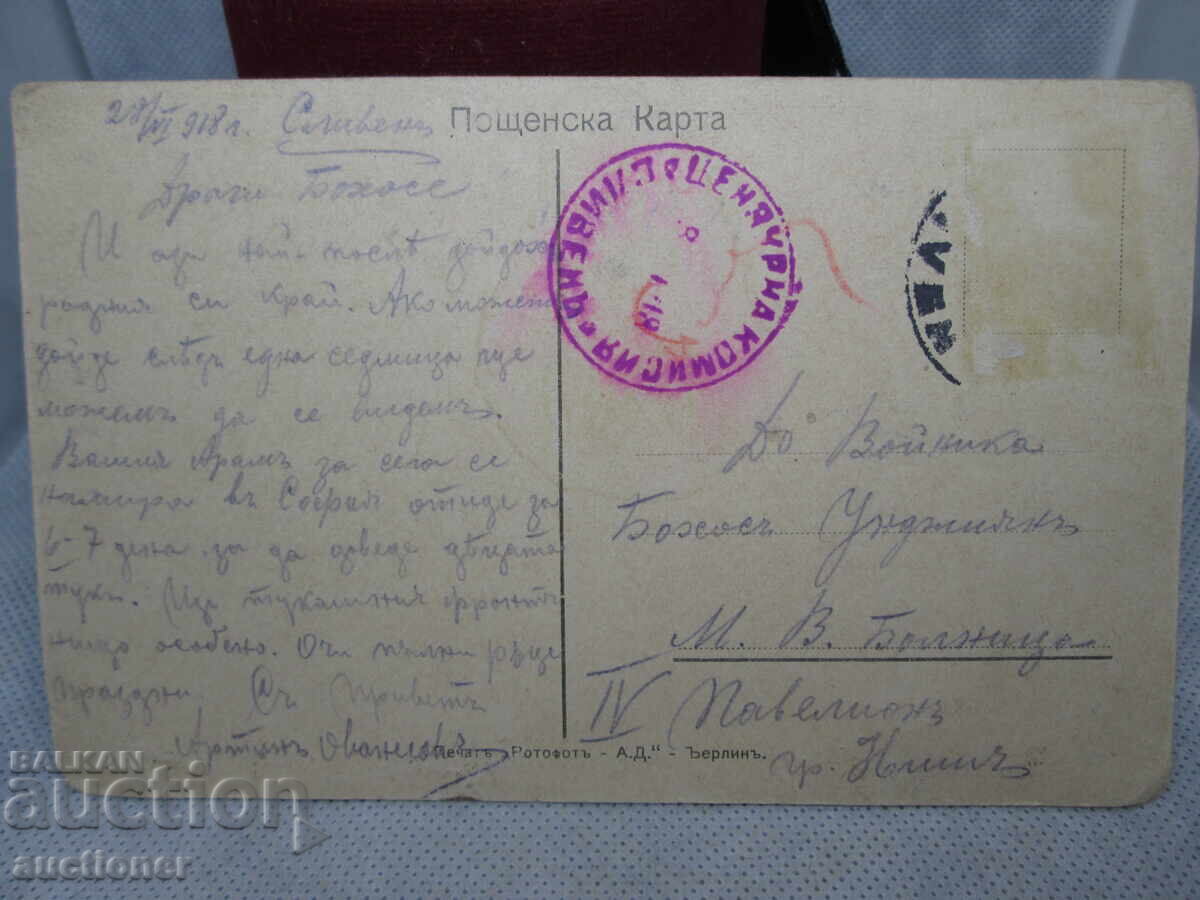 28/VI 918 г. Сливенъ
Пощенска Карта
Драги Бохосе
И ази най-послѣ дойдохъ
родния си край. Ако можешъ
дойде слѣдъ една седмица ще
можемъ да се видимъ.
Вашия Арамъ за сега се
намира въ София отиде за
6-7 дена за да доведе дѣцата
тукъ. Изъ тукашния фронтъ
нищо особено. Очи пълни рѫце
праздни. Съ приветъ
Артинъ
ПОЩ. ЦЕНЗУРНА КОМИСИЯ СЛИВЕНЪ
До Войника
Бохосъ Унджиянъ
М. В. Болница
IV Павелионъ
гр. Нишъ
Печатъ „Ротофотъ - А.Д." - Берлинъ.
BALKAN
auction
auctioner